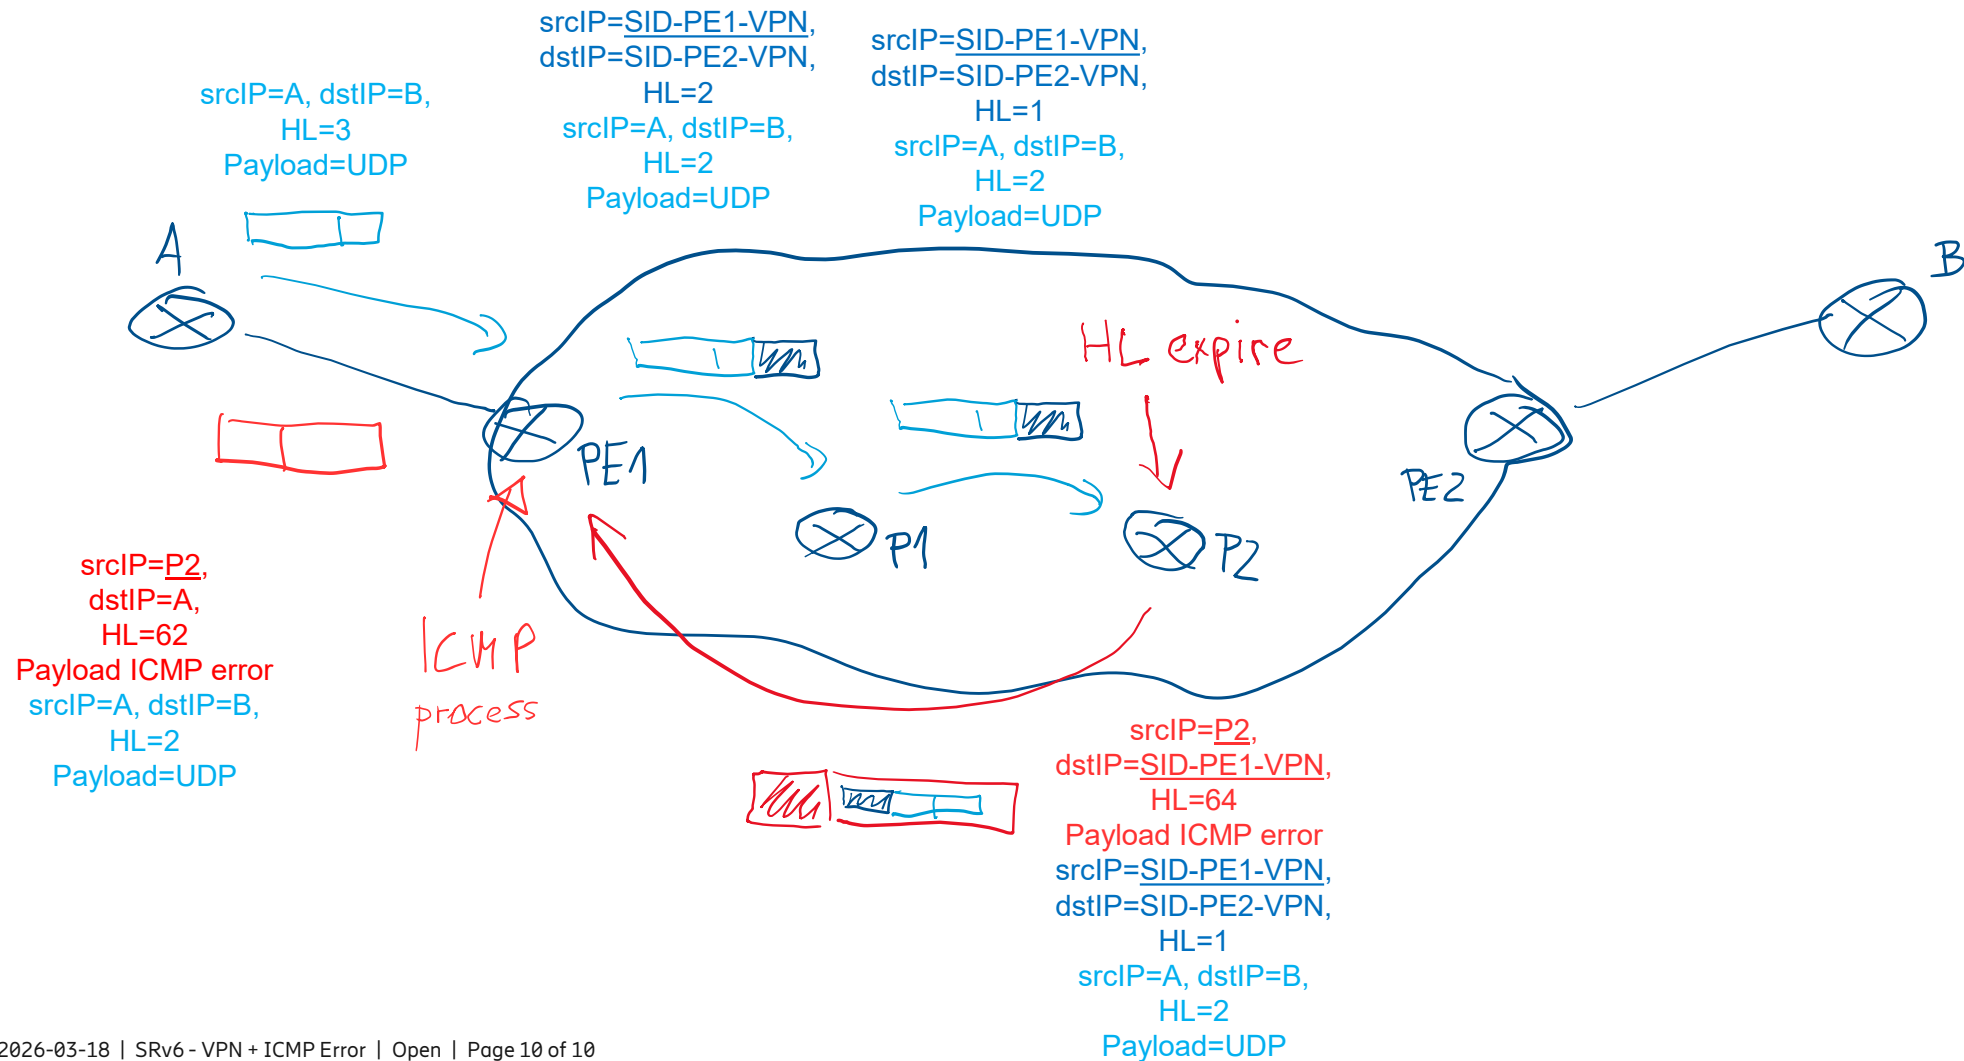 srcIP=SID-PE1-VPN,
dstIP=SID-PE2-VPN,
HL=2
srcIP=A, dstIP=B,
HL=2
Payload=UDP
srcIP=SID-PE1-VPN,
dstIP=SID-PE2-VPN,
HL=1
srcIP=A, dstIP=B,
HL=2
Payload=UDP
srcIP=A, dstIP=B,
HL=3
Payload=UDP
A
B
HL expire
PE1
PE2
P1
P2
ICMP
process
srcIP=P2,
dstIP=A,
HL=62
Payload ICMP error
srcIP=A, dstIP=B,
HL=2
Payload=UDP
srcIP=P2,
dstIP=SID-PE1-VPN,
HL=64
Payload ICMP error
srcIP=SID-PE1-VPN,
dstIP=SID-PE2-VPN,
HL=1
srcIP=A, dstIP=B,
HL=2
Payload=UDP
2026-03-18 | SRv6 - VPN + ICMP Error | Open | Page 10 of 10